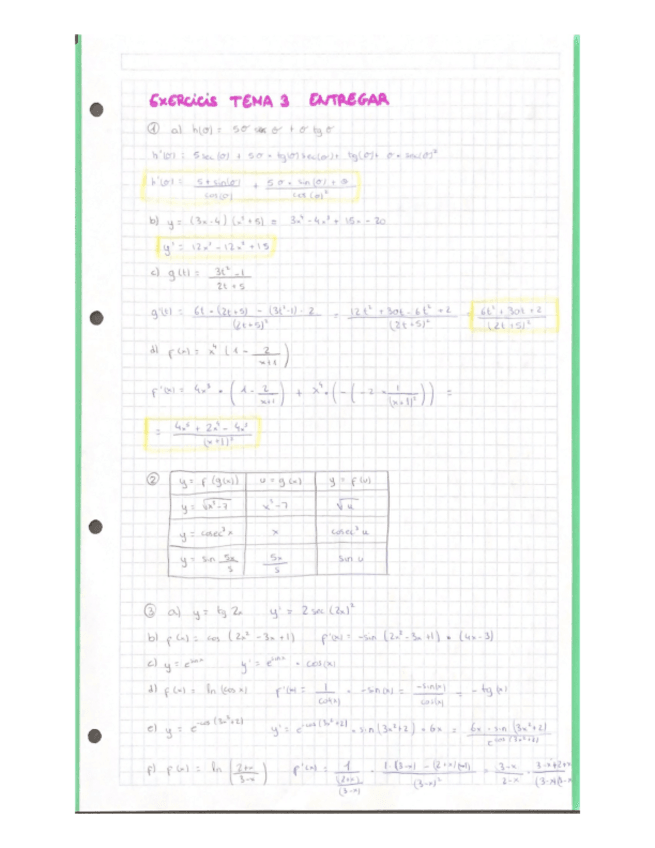 EXERCICIS TEMA 3 ENTREGAR
① a) h(σ) = 5σ sec σ + σ tg σ
h'(σ) = 5 sec(σ) + 5σ · tg(σ) sec(σ) + tg(σ) + σ · sec(σ)²
h'(σ) = 5 + sin(σ) / cos(σ) + 5σ · sin(σ) + σ / cos(σ)²
b) y = (3x-4) (x³+5) = 3x⁴ - 4x³ + 15x - 20
y' = 12x³ - 12x² + 15
c) g(t) = 3t² - 1 / 2t + 5
g'(t) = 6t · (2t+5) - (3t²-1) · 2 / (2t+5)² = 12t² + 30t - 6t² + 2 / (2t+5)² = 6t² + 30t + 2 / (2t+5)²
d) f(x) = x⁴ (1 - 2 / x+1)
f'(x) = 4x³ · (1 - 2 / x+1) + x⁴ · (-(-2 · 1 / (x+1)²)) =
= 4x⁵ + 2x⁴ - 4x³ / (x+1)²
② y = f(g(x)) u = g(x) y = f(u)
y = √x²-7 x²-7 √u
y = cosec³x x cosec³u
y = sin 5x / 5 5x / 5 sin u
③ a) y = tg 2x y' = 2 sec (2x)²
b) f(x) = cos (2x² - 3x + 1) f'(x) = -sin (2x² - 3x + 1) · (4x - 3)
c) y = e^sinx y' = e^sinx · cos(x)
d) f(x) = ln (cos x) f'(x) = 1 / cos(x) · -sin(x) = -sin(x) / cos(x) = - tg(x)
e) y = e^-cos(3x²+2) y' = e^-cos(3x²+2) · sin(3x²+2) · 6x = 6x · sin(3x²+2) / e^cos(3x²+2)
f) f(x) = ln (2+x / 3-x) f'(x) = 1 / (2+x / 3-x) · 1·(3-x) - (2+x)(-1) / (3-x)² = 3-x / 2-x · 3-x+2+x